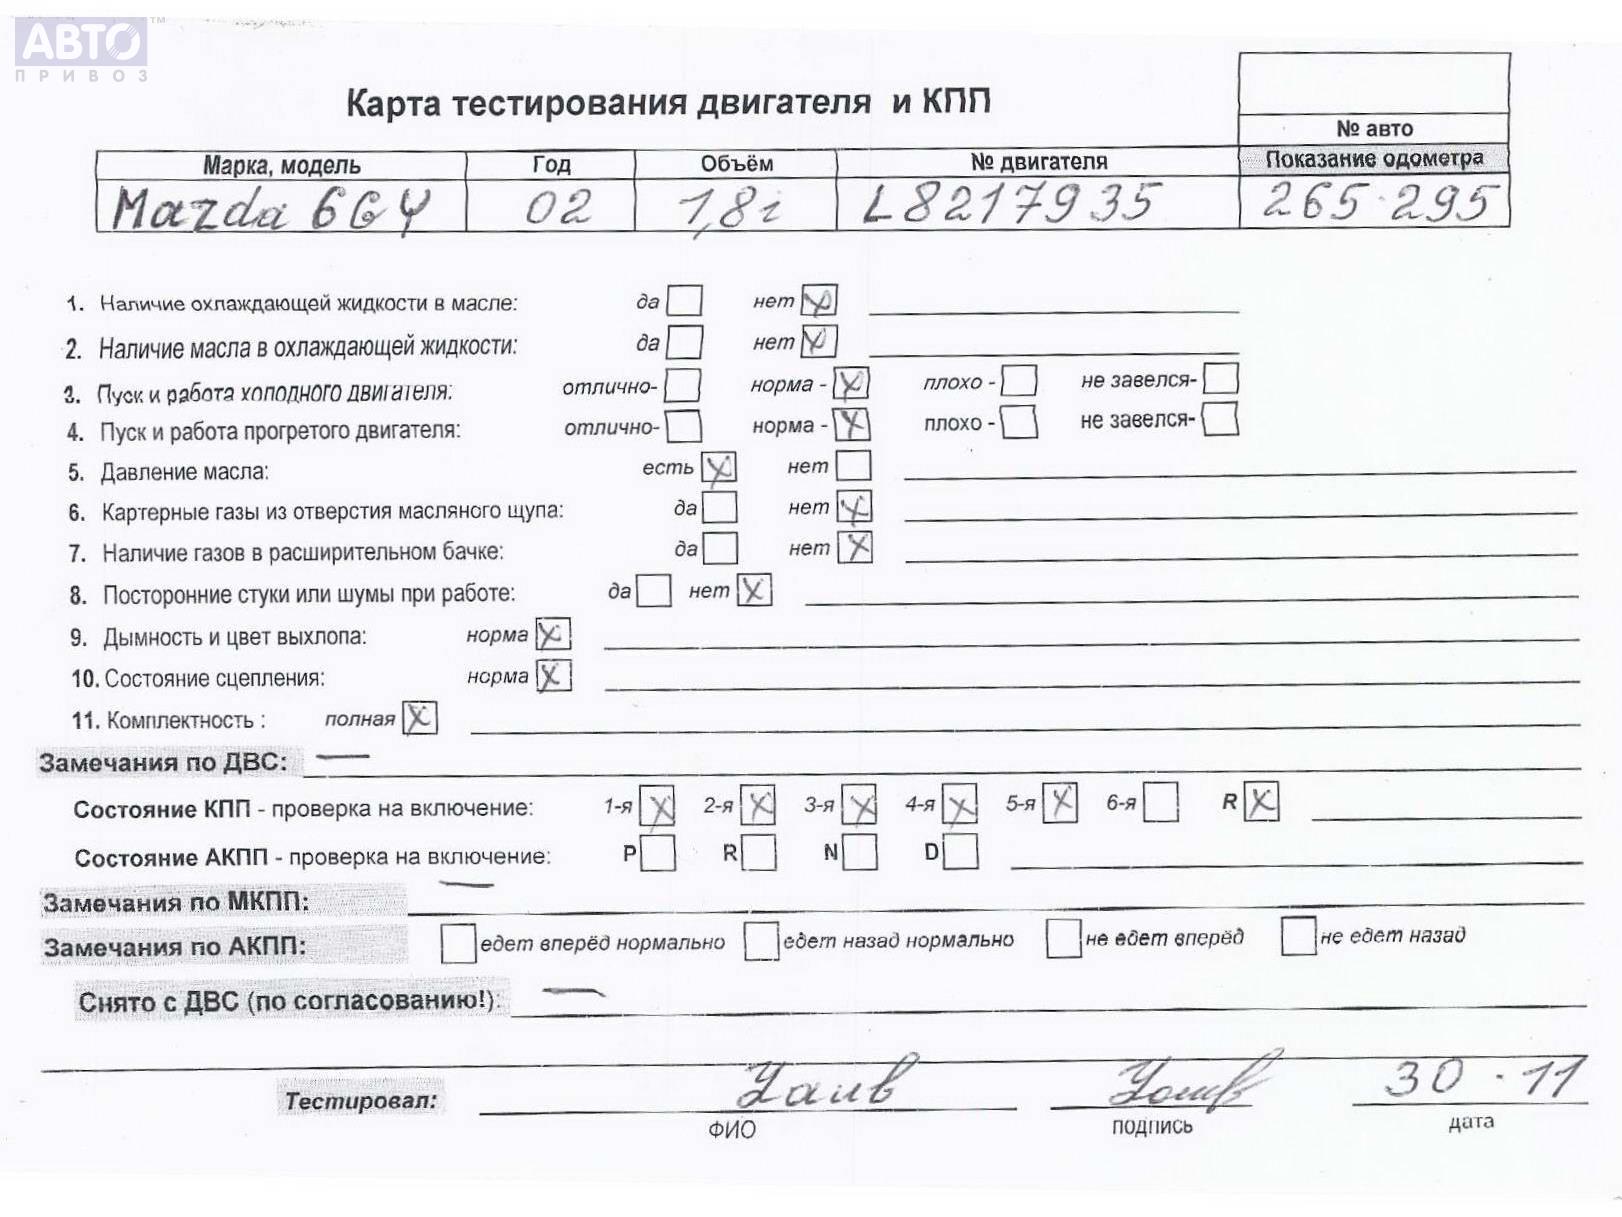 АВТО™
ПРИВОЗ
Карта тестирования двигателя и КПП
№ авто
Марка, модель Год Объём № двигателя Показание одометра
Mazda 6GY 02 1,8i L8217935 265 295
1. Наличие охлаждающей жидкости в масле: да нет X
2. Наличие масла в охлаждающей жидкости: да нет X
3. Пуск и работа холодного двигателя: отлично- норма - X плохо - не завелся-
4. Пуск и работа прогретого двигателя: отлично- норма - X плохо - не завелся-
5. Давление масла: есть X нет
6. Картерные газы из отверстия масляного щупа: да нет X
7. Наличие газов в расширительном бачке: да нет X
8. Посторонние стуки или шумы при работе: да нет X
9. Дымность и цвет выхлопа: норма X
10. Состояние сцепления: норма X
11. Комплектность : полная X
Замечания по ДВС: —
Состояние КПП - проверка на включение: 1-я X 2-я X 3-я X 4-я X 5-я X 6-я R X
Состояние АКПП - проверка на включение: P R N D
Замечания по МКПП: —
Замечания по АКПП: едет вперёд нормально едет назад нормально не едет вперёд не едет назад
Снято с ДВС (по согласованию!): —
Тестировал: 30.11
ФИО подпись дата